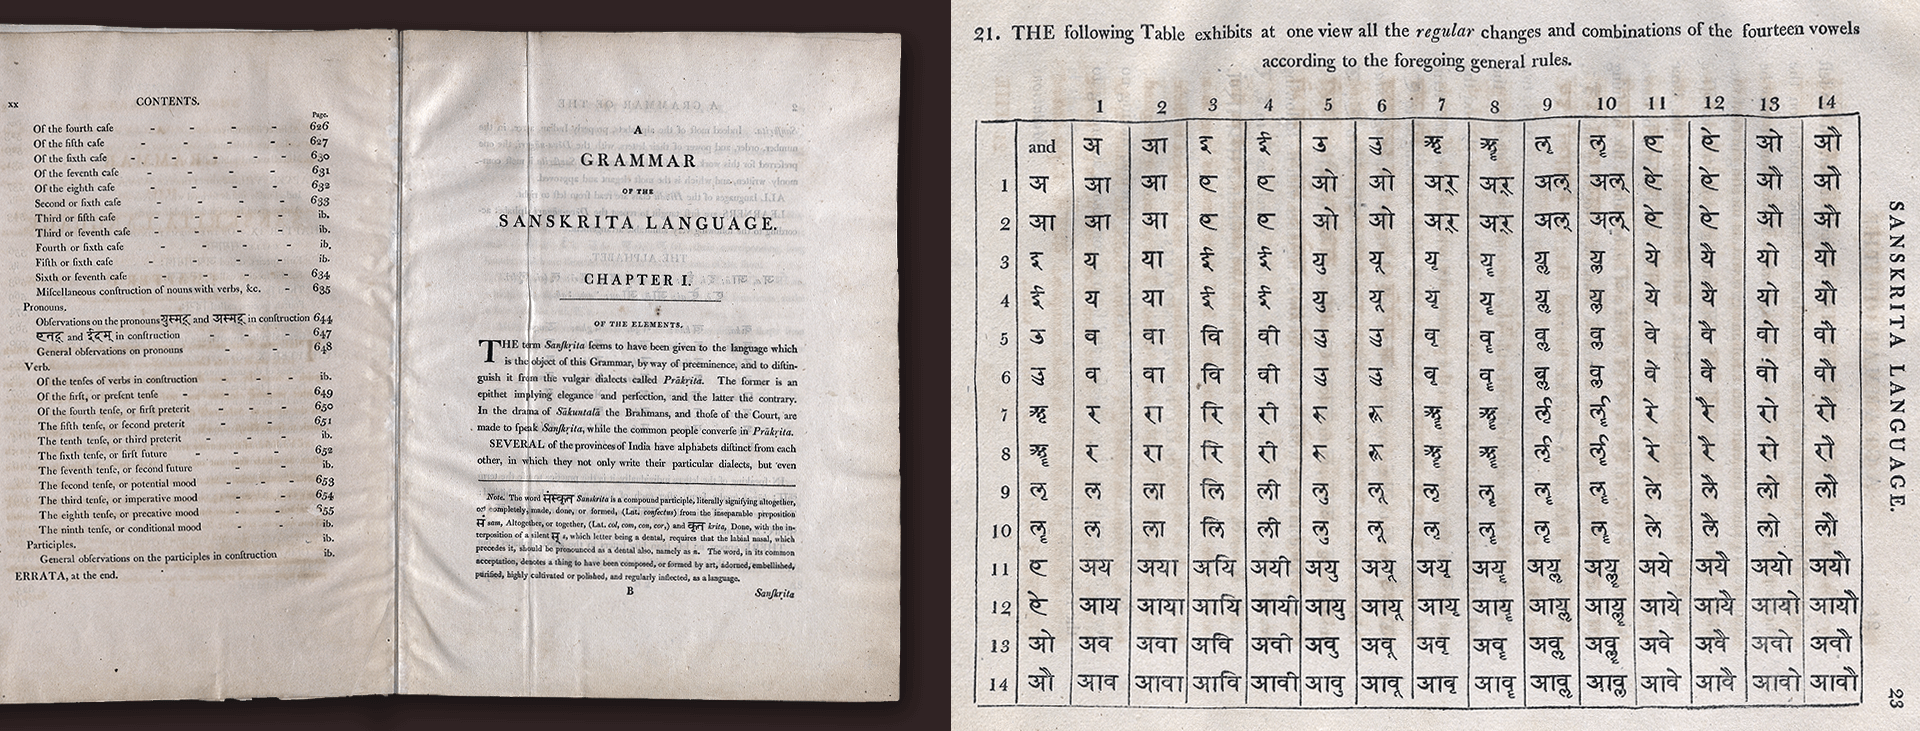 xx CONTENTS.
Page.
Of the fourth caſe - - - - 626
Of the fifth caſe - - - - 627
Of the sixth caſe - - - - 630
Of the seventh caſe - - - - 631
Of the eighth caſe - - - - 632
Second or ſixth caſe - - - - 633
Third or fifth caſe - - - - ib.
Third or ſeventh caſe - - - - ib.
Fourth or ſixth caſe - - - ib.
Fifth or ſixth caſe - - - - ib.
Sixth or ſeventh caſe - - - - 634
Miſcellaneous conſtruction of nouns with verbs, &c. - 635
Pronouns.
Obſervations on the pronouns युस्मद् and अस्मद् in conſtruction 644
एतद् and ईदम् in conſtruction - - - 647
General obſervations on pronouns - - - 648
Verb.
Of the tenſes of verbs in conſtruction - - - ib.
Of the firſt, or preſent tenſe - - - - 649
Of the fourth tenſe, or firſt preterit - - - 650
The fifth tenſe, or ſecond preterit - - - 651
The tenth tenſe, or third preterit - - - - ib.
The ſixth tenſe, or firſt future - - - - 652
The ſeventh tenſe, or ſecond future - - - ib.
The ſecond tenſe, or potential mood - - - 653
The third tenſe, or imperative mood - - - 654
The eighth tenſe, or precative mood - - - 655
The ninth tenſe, or conditional mood - - - ib.
Participles. - ib.
General obſervations on the participles in conſtruction ib.
ERRATA, at the end.
A
GRAMMAR
OF THE
SANSKRITA LANGUAGE.
CHAPTER I.
OF THE ELEMENTS.
THE term Sanſkrĭta ſeems to have been given to the language which
is the object of this Grammar, by way of preeminence, and to diſtin-
guiſh it from the vulgar dialects called Prākrĭta. The former is an
epithet implying elegance and perfection, and the latter the contrary.
In the drama of Sākuntalā the Brahmans, and thoſe of the Court, are
made to ſpeak Sanſkrĭta, while the common people converſe in Prākrĭta.
SEVERAL of the provinces of India have alphabets diſtinct from each
other, in which they not only write their particular dialects, but even
Note. The word संस्कृत Sanskrita is a compound participle, literally signifying altogether,
or completely, made, done, or formed, (Lat. confectus) from the inseparable preposition
सं sam, Altogether, or together, (Lat. col, com, con, cor,) and कृत krita, Done, with the in-
terposition of a silent स् s, which letter being a dental, requires that the labial nasal, which
precedes it, should be pronounced as a dental also, namely as n. The word, in its common
acceptation, denotes a thing to have been composed, or formed by art, adorned, embellished,
purified, highly cultivated or polished, and regularly inflected, as a language.
B Sanſkrĭta
21. THE following Table exhibits at one view all the regular changes and combinations of the fourteen vowels
according to the foregoing general rules.
1 2 3 4 5 6 7 8 9 10 11 12 13 14
and अ आ इ ई उ ऊ ऋ ॠ ऌ ॡ ए ऐ ओ औ
1 अ आ आ ए ए ओ ओ अर् अर् अल् अल् ऐ ऐ औ औ
2 आ आ आ ए ए ओ ओ अर् अर् अल् अल् ऐ ऐ औ औ
3 इ य या ई ई यु यू यृ यॄ यॢ यॣ ये यै यो यौ
4 ई य या ई ई यु यू यृ यॄ यॢ यॣ ये यै यो यौ
5 उ व वा वि वी ऊ ऊ वृ वॄ वॢ वॣ वे वै वो वौ
6 ऊ व वा वि वी ऊ ऊ वृ वॄ वॢ वॣ वे वै वो वौ
7 ऋ र रा रि री रु रू ॠ ॠ रे रै रो रौ
8 ॠ र रा रि री रु रू ॠ ॠ रे रै रो रौ
9 ऌ ल ला लि ली लु लू लृ लॄ ॡ ॡ ले लै लो लौ
10 ॡ ल ला लि ली लु लू लृ लॄ ॡ ॡ ले लै लो लौ
11 ए अय अया अयि अयी अयु अयू अयृ अयॄ अयॢ अयॣ अये अयै अयो अयौ
12 ऐ आय आया आयि आयी आयु आयू आयृ आयॄ आयॢ आयॣ आये आयै आयो आयौ
13 ओ अव अवा अवि अवी अवु अवू अवृ अवॄ अवॢ अवॣ अवे अवै अवो अवौ
14 औ आव आवा आवि आवी आवु आवू आवृ आवॄ आवॢ आवॣ आवे आवै आवो आवौ
SANSKRITA LANGUAGE.
23